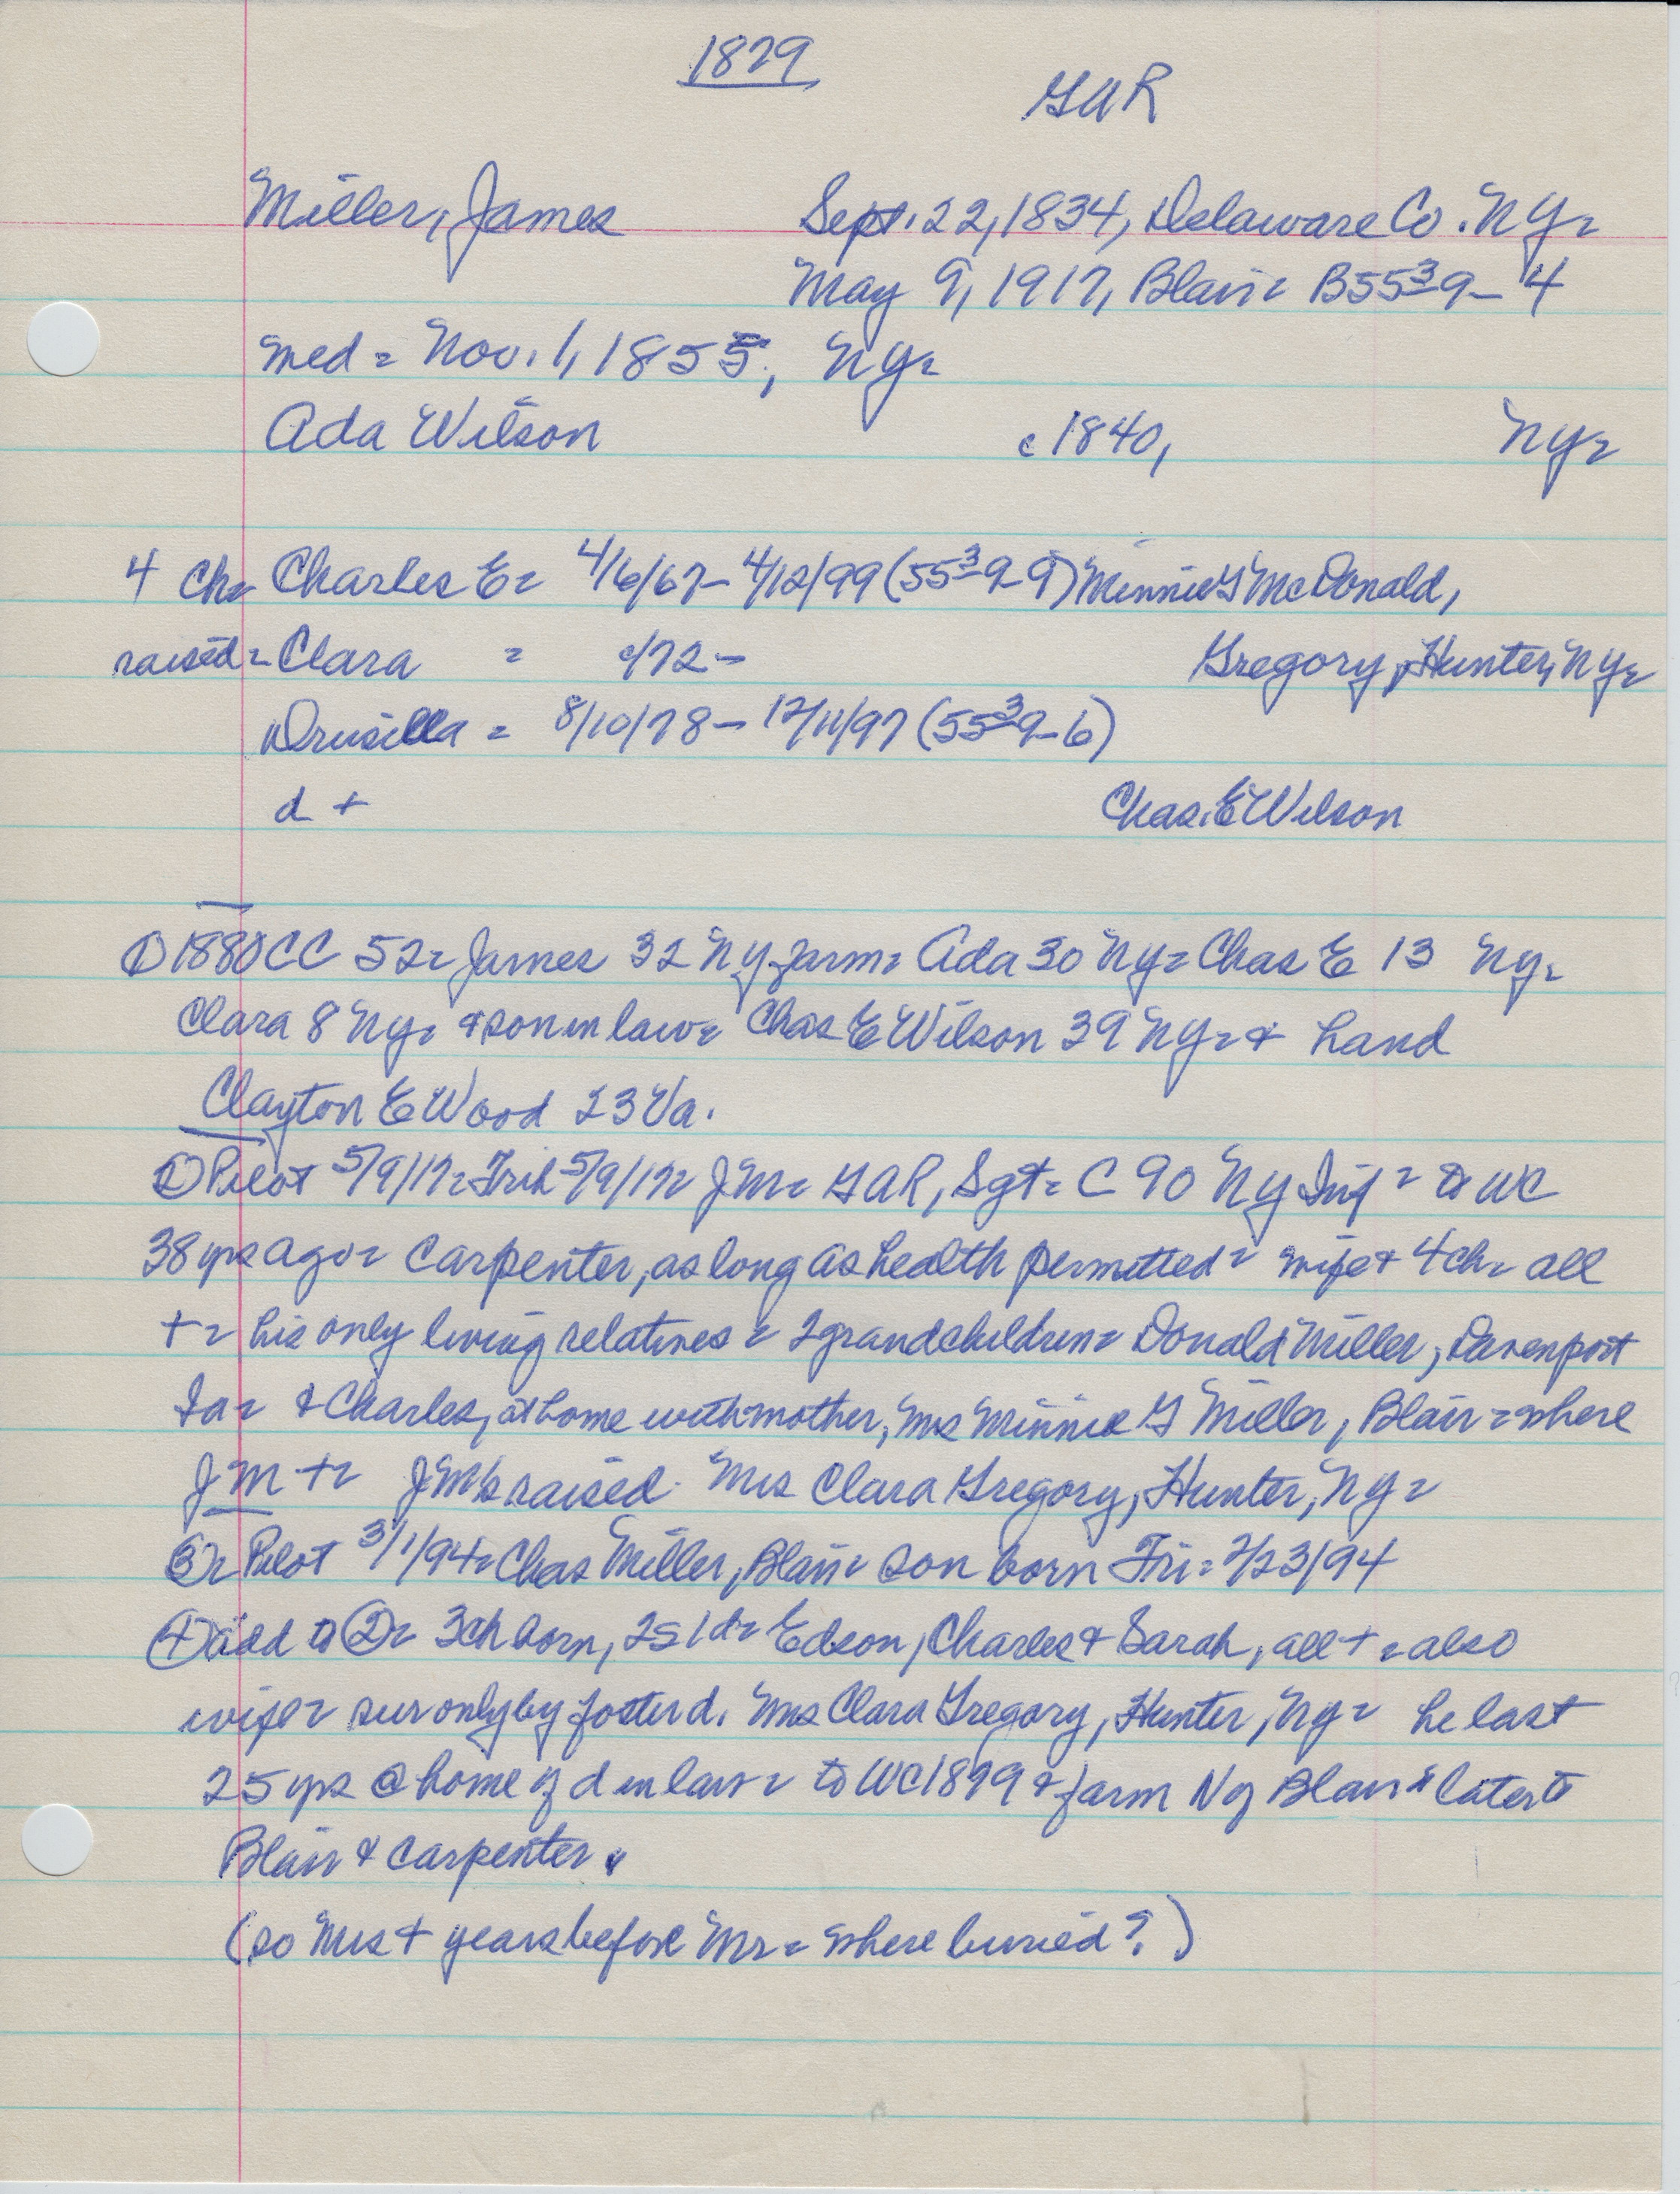 1879
GAR
Miller, James Sept. 22, 1834, Delaware Co. NY=
May 9, 1917, Blair= B55 3 9-4
med = Nov. 1, 1855, NY=
Ada Wilson c 1840, NY=
4 ch= Charles E= 4/6/67- 4/12/99 (55 3 9-9) Minnie G McDonald,
raised= Clara = c/72 - Gregory, Hunter, NY=
Drusilla = 8/10/78- 12/11/97 (55 3 9-6)
d + Chas. E Wilson
① 1880 CC 52= James 32 NY farm= Ada 30 NY= Chas E 13 NY=
Clara 8 NY= & son in law= Chas E Wilson 39 NY= & hand
Clayton E Wood 23 Va.
② Pilot 5/9/17= Trib 5/9/17= JM= GAR, Sgt= C 90 NY Inf = to WC
38 yrs ago= carpenter, as long as health permitted= wife & 4 ch= all
+= his only living relatives = 2 grandchildren= Donald Miller, Davenport
Ia= & Charles, at home with mother, Mrs Minnie G Miller, Blair = where
JM += JM's raised Mrs Clara Gregory, Hunter, NY=
③= Pilot 3/1/94= Chas Miller, Blair= son born Fri= 2/23/94
④ add to ②= 3 ch born, 2s 1d= Edson, Charles & Sarah, all + = also
wife= sur only by foster d. Mrs Clara Gregory, Hunter, NY= he last
25 yrs @ home of d in law= to WC 1879 & farm N of Blair & later to
Blair & carpenter.
(so Mrs + years before Mr= where buried?)